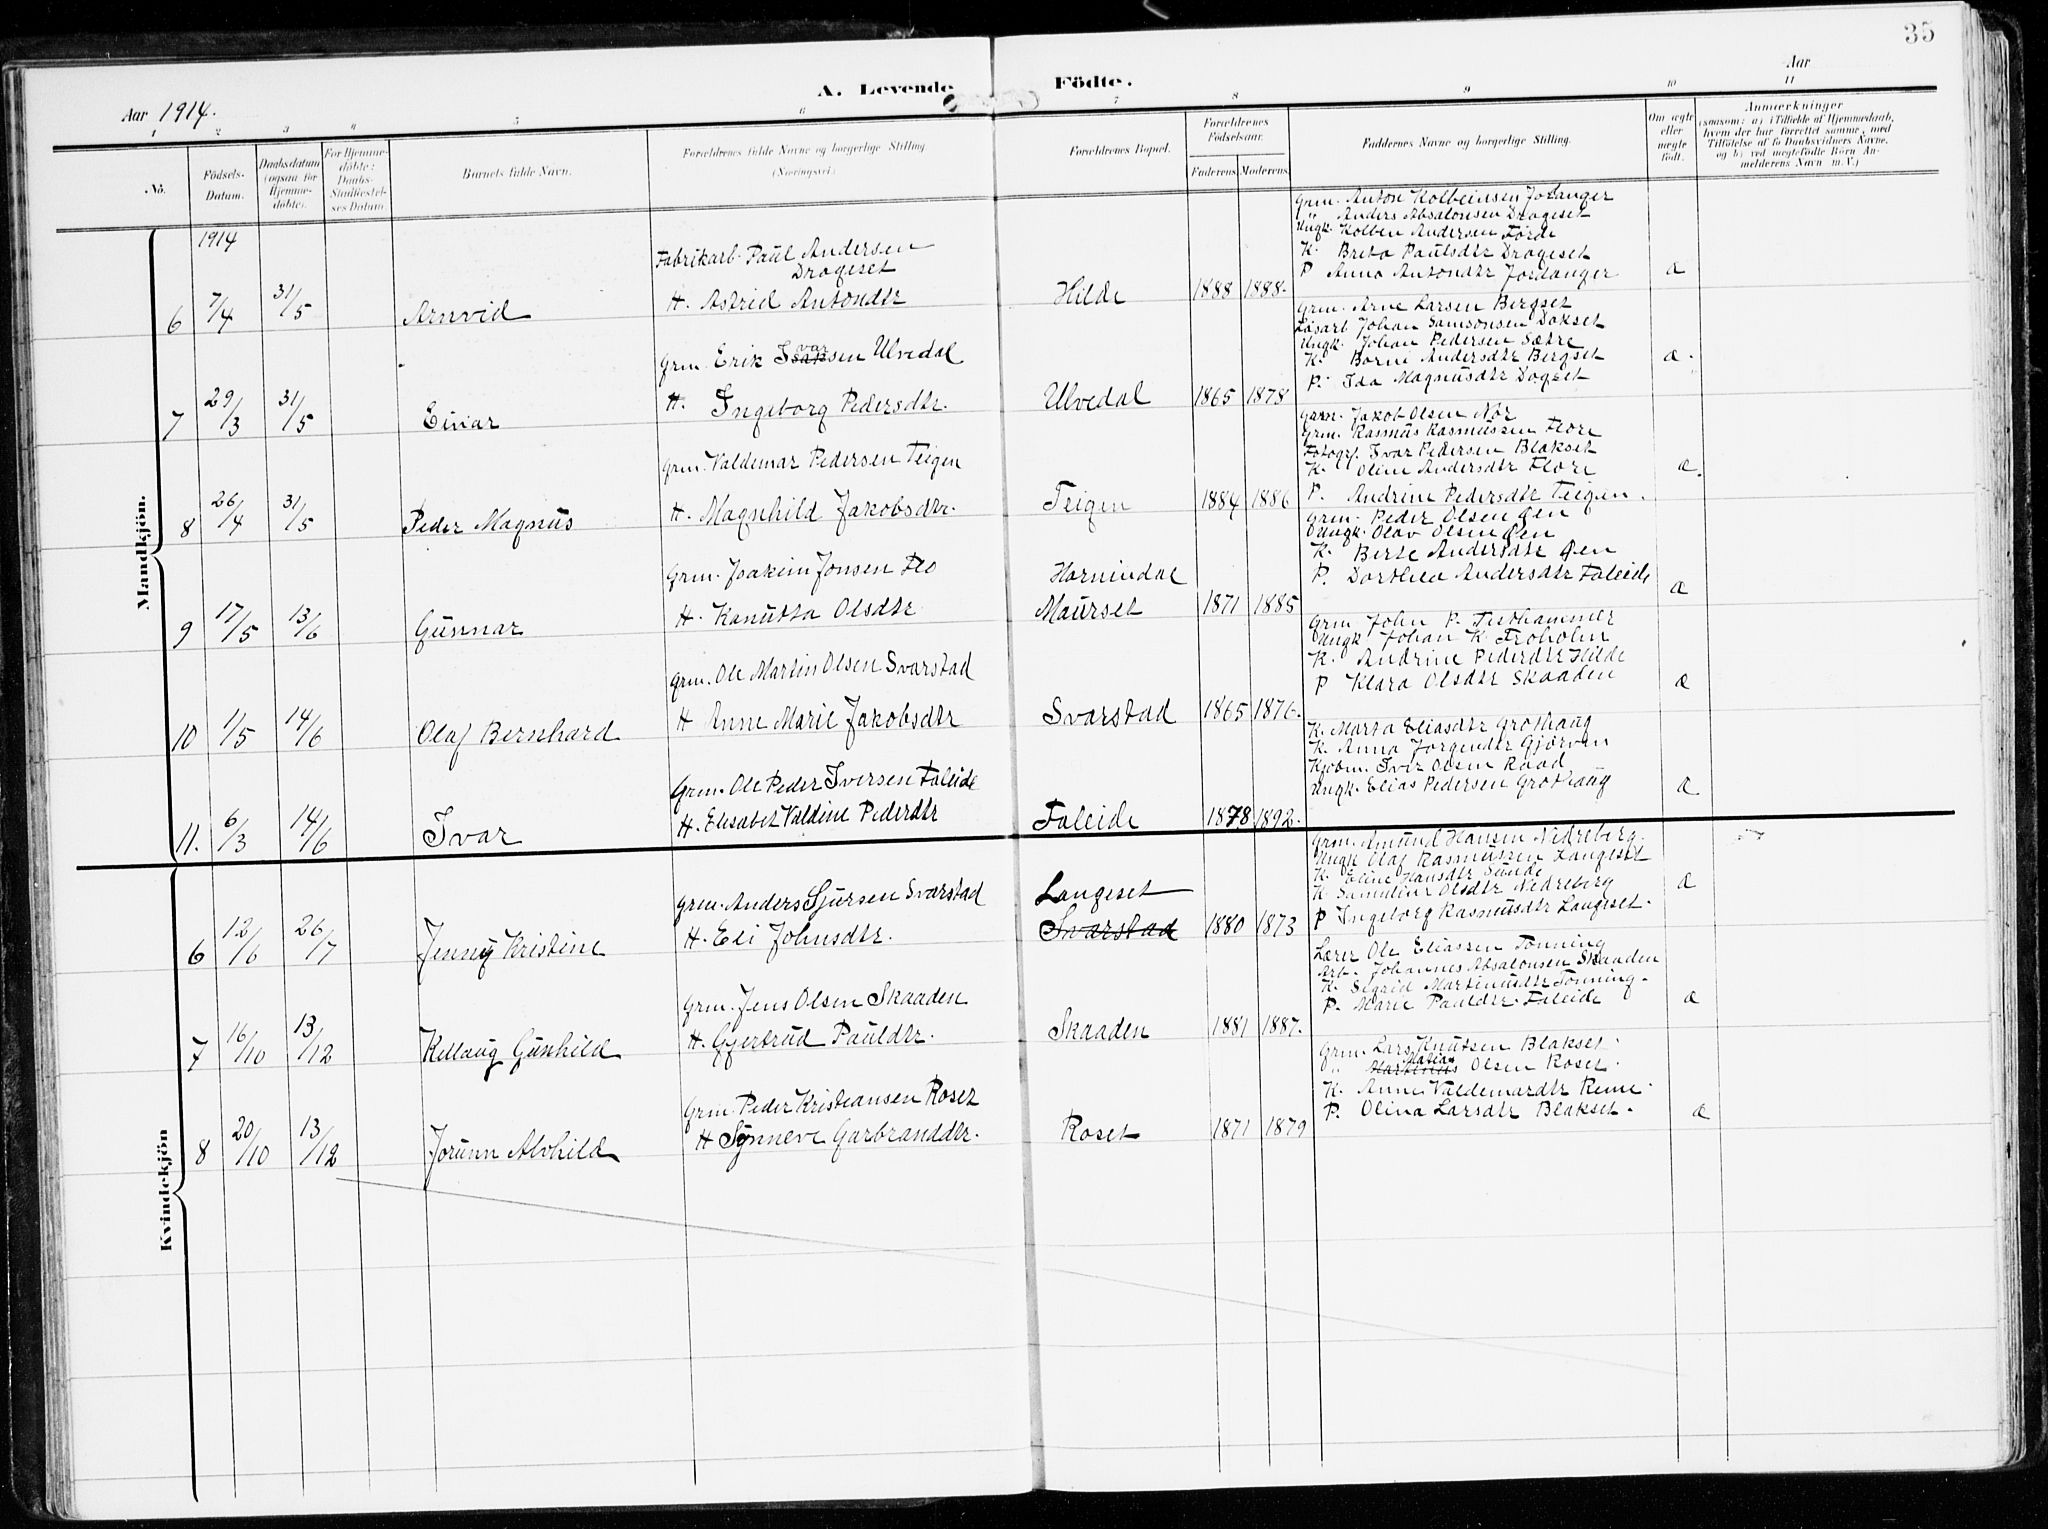 35
A. Levende Födte.
Aar 1914.
Aar
1 2 3 4 5 6 7 8 9 10 11
No.
Födsels-Datum.
Daabsdatum (ogsaa for Hjemmedöbte).
For Hjemmedöbte: Daabs-Stadfæstelses Datum
Barnets fulde Navn.
Forældrenes fulde Navne og borgerlige Stilling (Næringsvei).
Forældrenes Bopæl.
Forældrenes Födselsaar.
Faderens Moderens
Faddernes Navne og borgerlige Stilling.
Om ægte eller uægte født.
Anmærkninger
(saasom: a) i Tilfælde af Hjemmedaab, hvem der har forrettet samme, med Tilföielse af to Daabsvidners Navne, og b) ved uægtefödte Börn Anmelderens Navn m. V.)
Mandkjön.
1914
6 7/4 31/5 Arnvid
Fabrikarb. Paul Andersen Drageset
H. Astrid Antondtr
Hilde 1888 1888.
Grm. Anton Kolbeinsen Joranger
" Anders Absalonsen Drageset
Ungk. Kolben Andersen Förde
K. Breta Paulsdtr Drageset
P Anna Antondtr Jordanger
æ
7 29/3 31/5 Einar
Grm. Erik Isaksen var Ulvedal
H. Ingeborg Pedersdtr.
Ulvedal 1865 1878
Grm. Arne Larsen Bergset
Løsarb Johan Samsonsen Dokset
Ungk. Johan Pedersen Sætre
K. Borni Andersdtr Bergset
P. Ida Magnusdtr Dogset
æ.
8 26/4 31/5 Peder Magnus
Grm. Valdemar Pedersen Teigen
H. Magnhild Jakobsdtr.
Teigen 1884 1886
Grm. Jakob Olsen Nör
Grm. Rasmus Rasmussen Flore
Fotogr. Ivar Pedersen Blakset
K. Oline Andersdtr Flore
P. Andrine Pedersdtr Teigen.
æ.
9 17/5 13/6 Gunnar
Grm. Joakim Jonsen Flo
H. Kanutta Olsdtr
Hornindal
Maurset 1871 1885
Grm. Peder Olsen Øen
Ungk. Olav Olsen Øen
K. Berte Andersdtr Øen
P. Dorthea Andersdtr Faleide
æ
10 1/5 14/6 Olaf Bernhard
Grm. Ole Martin Olsen Svarstad
H Anne Marie Jakobsdtr
Svarstad 1865 1876.
Grm John P. Tisthammer
Ungk Johan K. Froholm
K. Andrine Pederdtr Hilde
P Klara Olsdtr Skaaden
æ
11. 6/3 14/6 Ivar
Grm. Ole Peder Iversen Faleide
H. Elisabet Valdine Pederdtr
Faleide 1878 1892.
K. Marta Eliasdtr Grothaug
K. Anna Jörgendtr Gjörven
Kjøbm. Iver Olsen Raad
Ungk. Elias Pedersen Grothaug
æ
Kvindekjön
6 12/6 26/7 Jenny Kristine
Grm. Anders Sjursen Svarstad
H. Eli Johnsdtr.
Langeset
Svarstad 1880 1873
Grm. Amund Hansen Nedreberg.
Ungk Olaf Rasmussen Langeset
K. Eline Hansdtr Sunde
K Sanuline Olsdtr Nedreberg
P Ingeborg Rasmusdtr Langeset.
æ
7 16/10 13/12 Kellaug Gunhild
Grm. Jens Olsen Skaaden
H. Gjertrud Pauldtr.
Skaaden 1881 1887.
Lærer Ole Eliassen Tonning
Arb. Johannes Absalonsen Skaaden
K. Sigrid Martinusdtr Tonning.
P. Marie Pauldtr. Faleide
æ
8 20/10 13/12 Jorunn Alvhild
Grm. Peder Kristiansen Roset
H Synneve Garbranddtr.
Roset 1871 1879
Grm. Lars Knutsen Blakset.
" Martinus Matias Olsen Roset.
K. Anne Valdemardtr Reme.
P. Olina Larsdtr Blakset.
æ